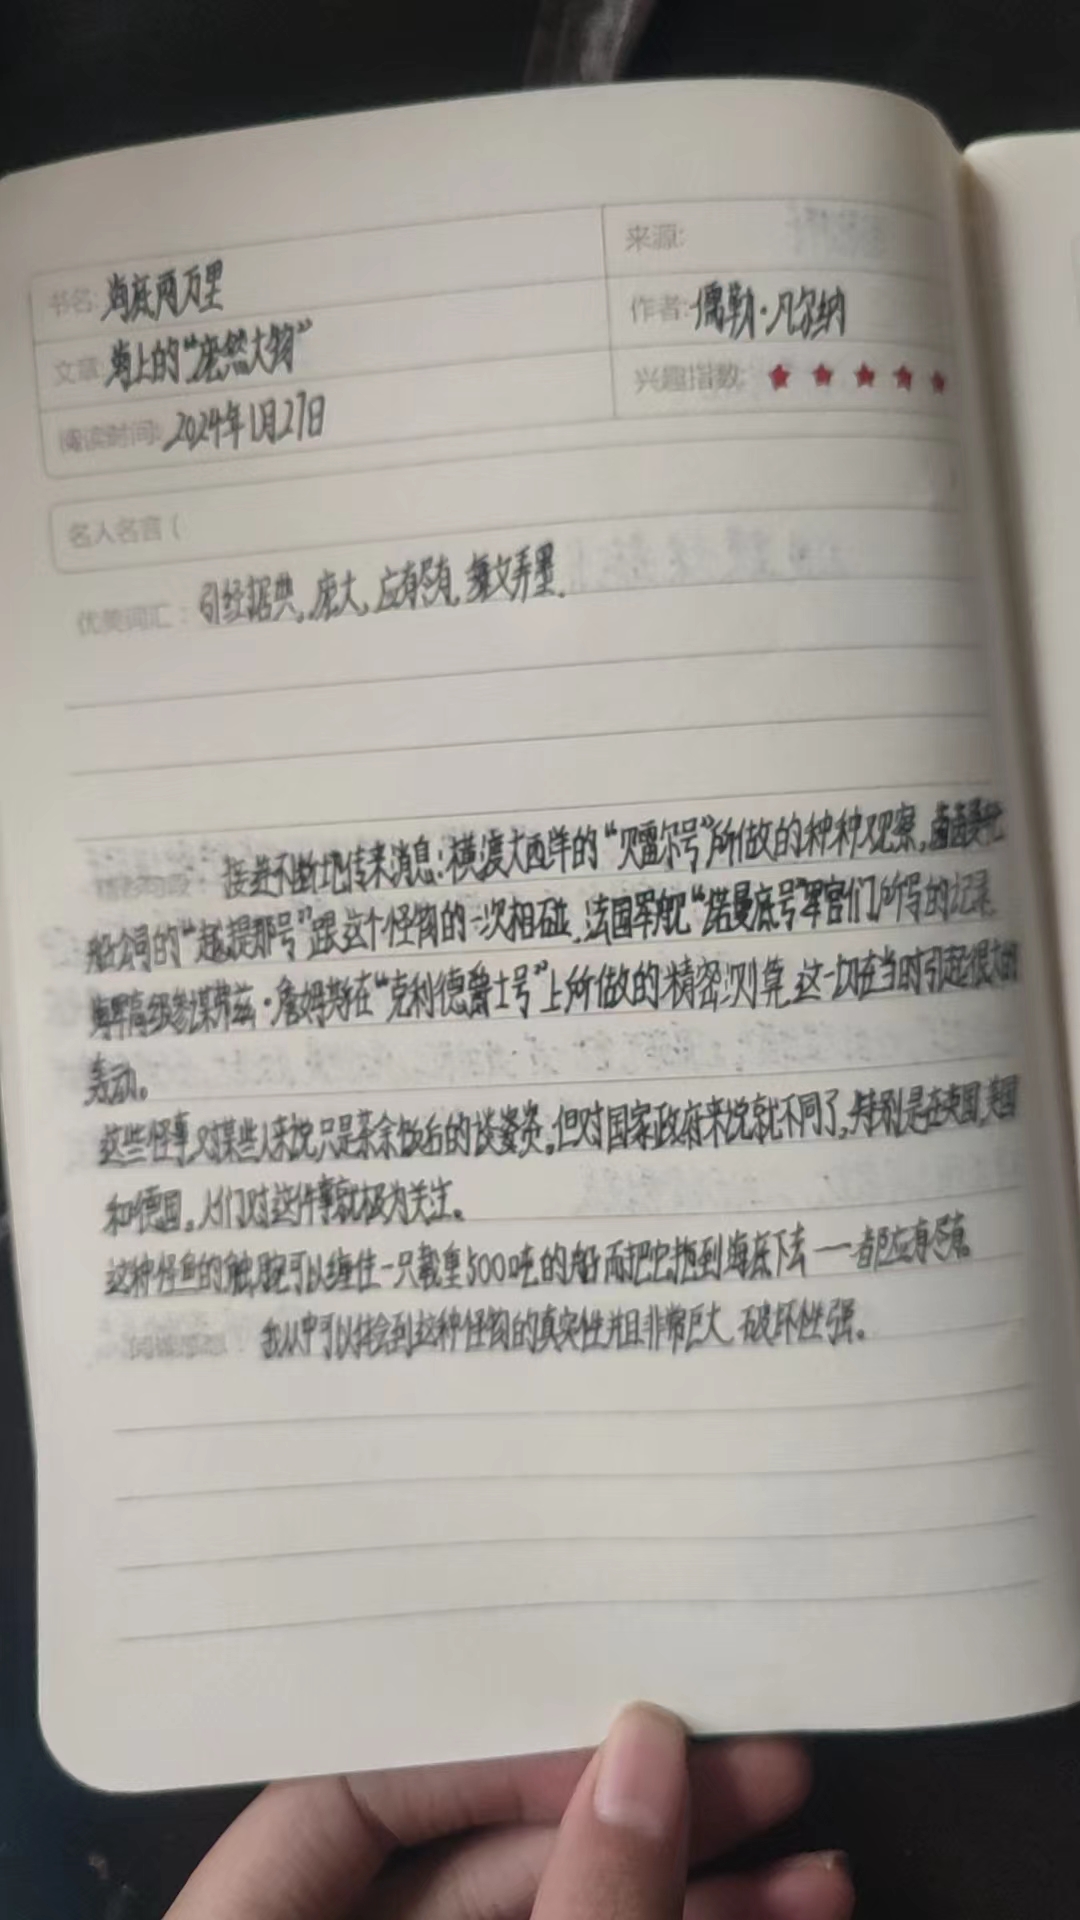 来源:
书名: 海底两万里
作者: 儒勒·凡尔纳
文章: 海上的“庞然大物”
兴趣指数:
阅读时间: 2024年1月27日
名人名言(
优美词汇: 引经据典, 庞大, 应有尽有, 舞文弄墨.
接连不断地传来消息: 横渡大西洋的“贝雷尔号”所做的种种观察,
船公司的“越提那号”跟这个怪物的一次相碰, 法国军舰“诺曼底号”军官们所写的记录
海军高级参谋弗兹·詹姆斯在“克利德爵士号”上所做的精密测算, 这一切在当时引起很大的
轰动。
这些怪事对某些人来说只是茶余饭后的谈资,但对国家政府来说就不同了, 特别是在英国, 美国
和德国, 人们对这件事就极为关注。
这种怪鱼的触腕可以缠住一只载重500吨的船而把它拖到海底下去——都应有尽有。
我从中可以体会到这种怪物的真实性并且非常巨大, 破坏性强。